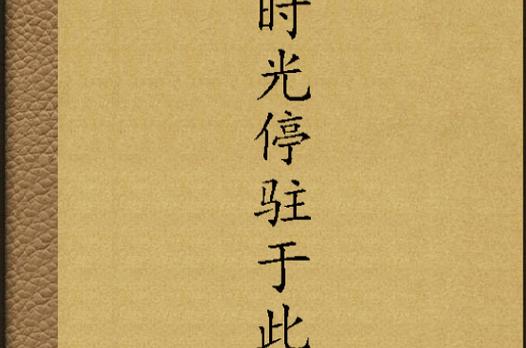 时光停驻于此